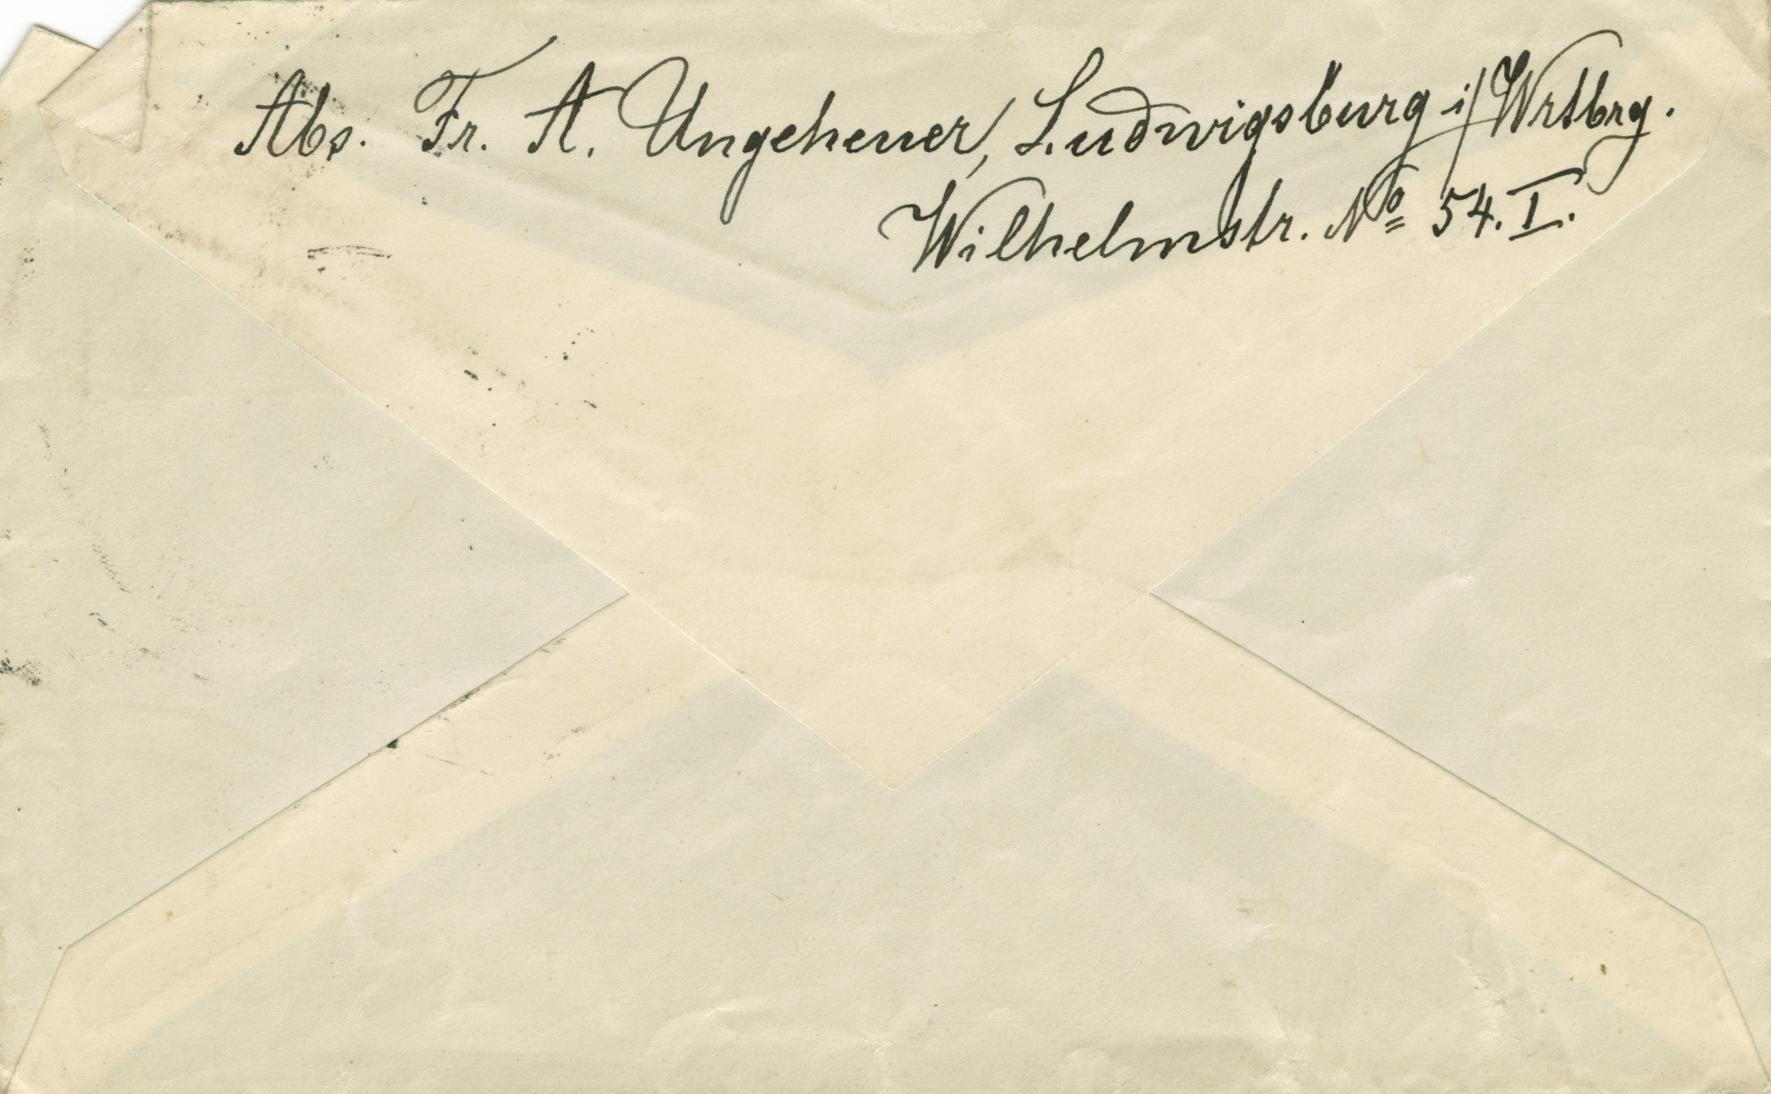 Abs. Fr. A. Ungeheuer, Ludwigsburg i/Wrtbrg.
Wilhelmstr. No 54. I.